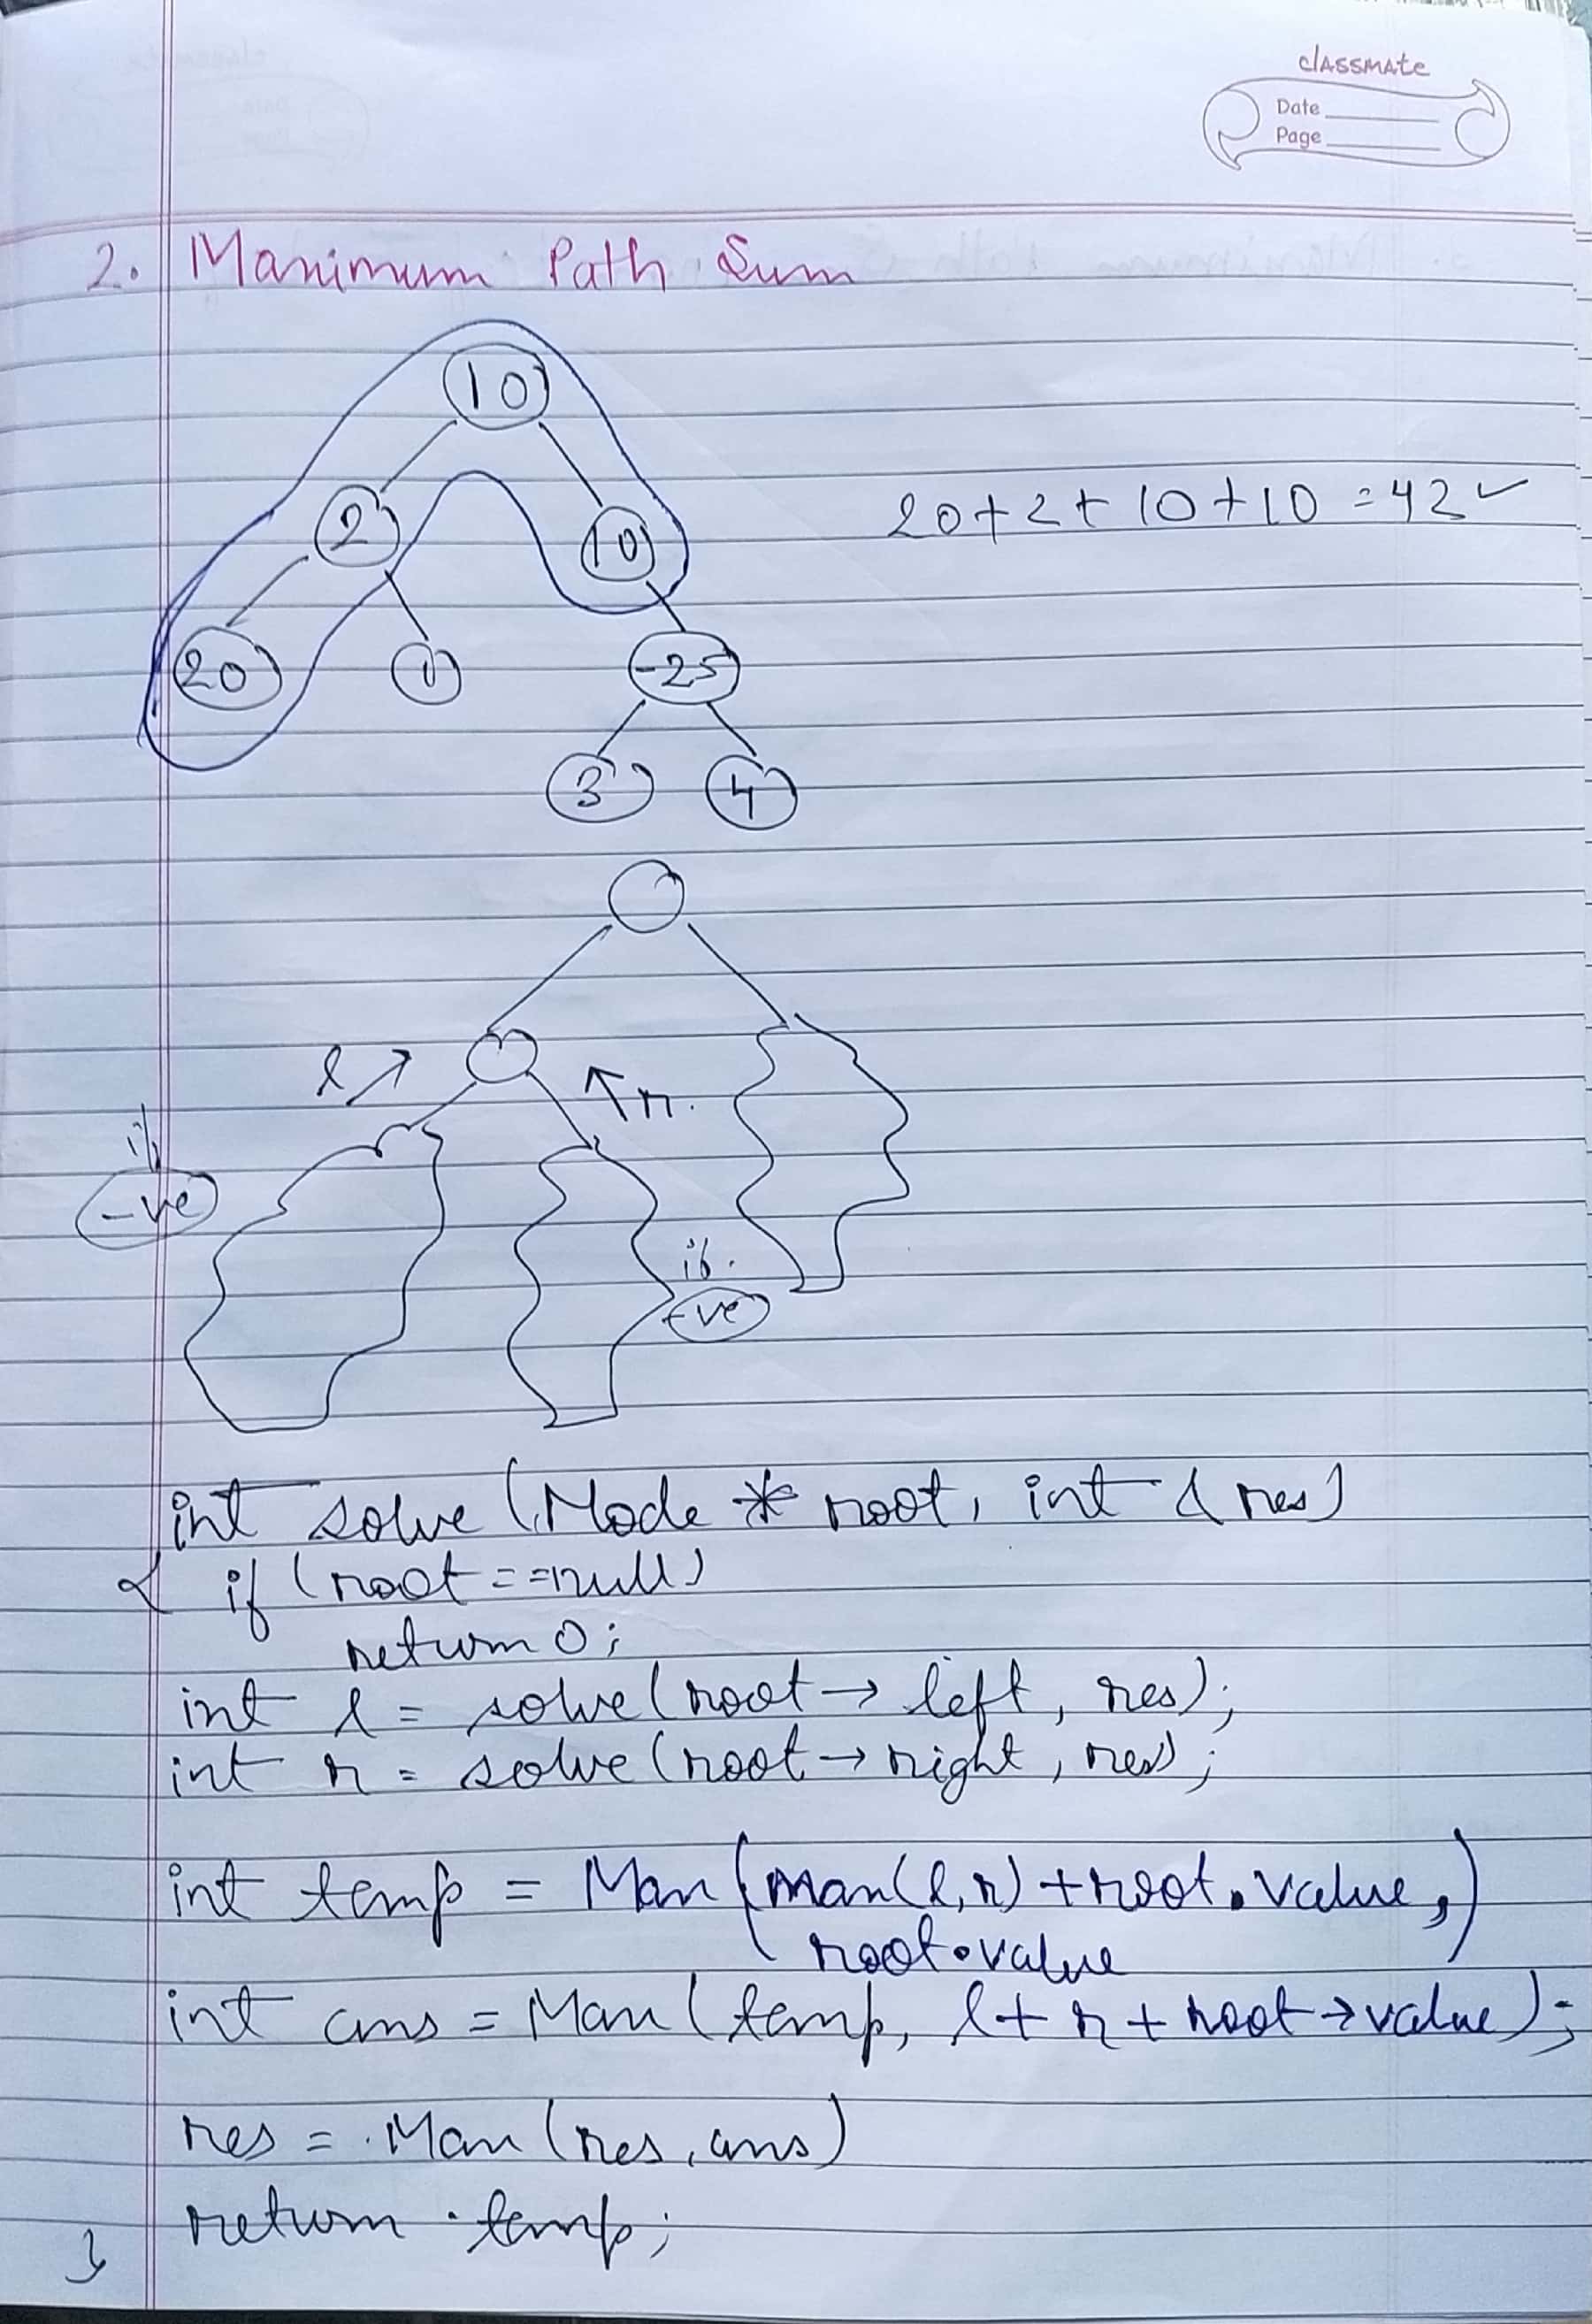 classmate
Date
Page
2. Maximum Path Sum
10
2
10
20+2+10+10=42 ✓
20
1
-25
3
4
l
r.
if
-ve
if.
-ve
int solve (Node * root, int & res)
{ if (root==null)
return 0;
int l = solve(root→left, res);
int r = solve(root→right, res);
int temp = Max(max(l,r)+root.value,
root.value)
int ans = Max(temp, l+r+root→value);
res = Max(res, ans)
return temp;
}